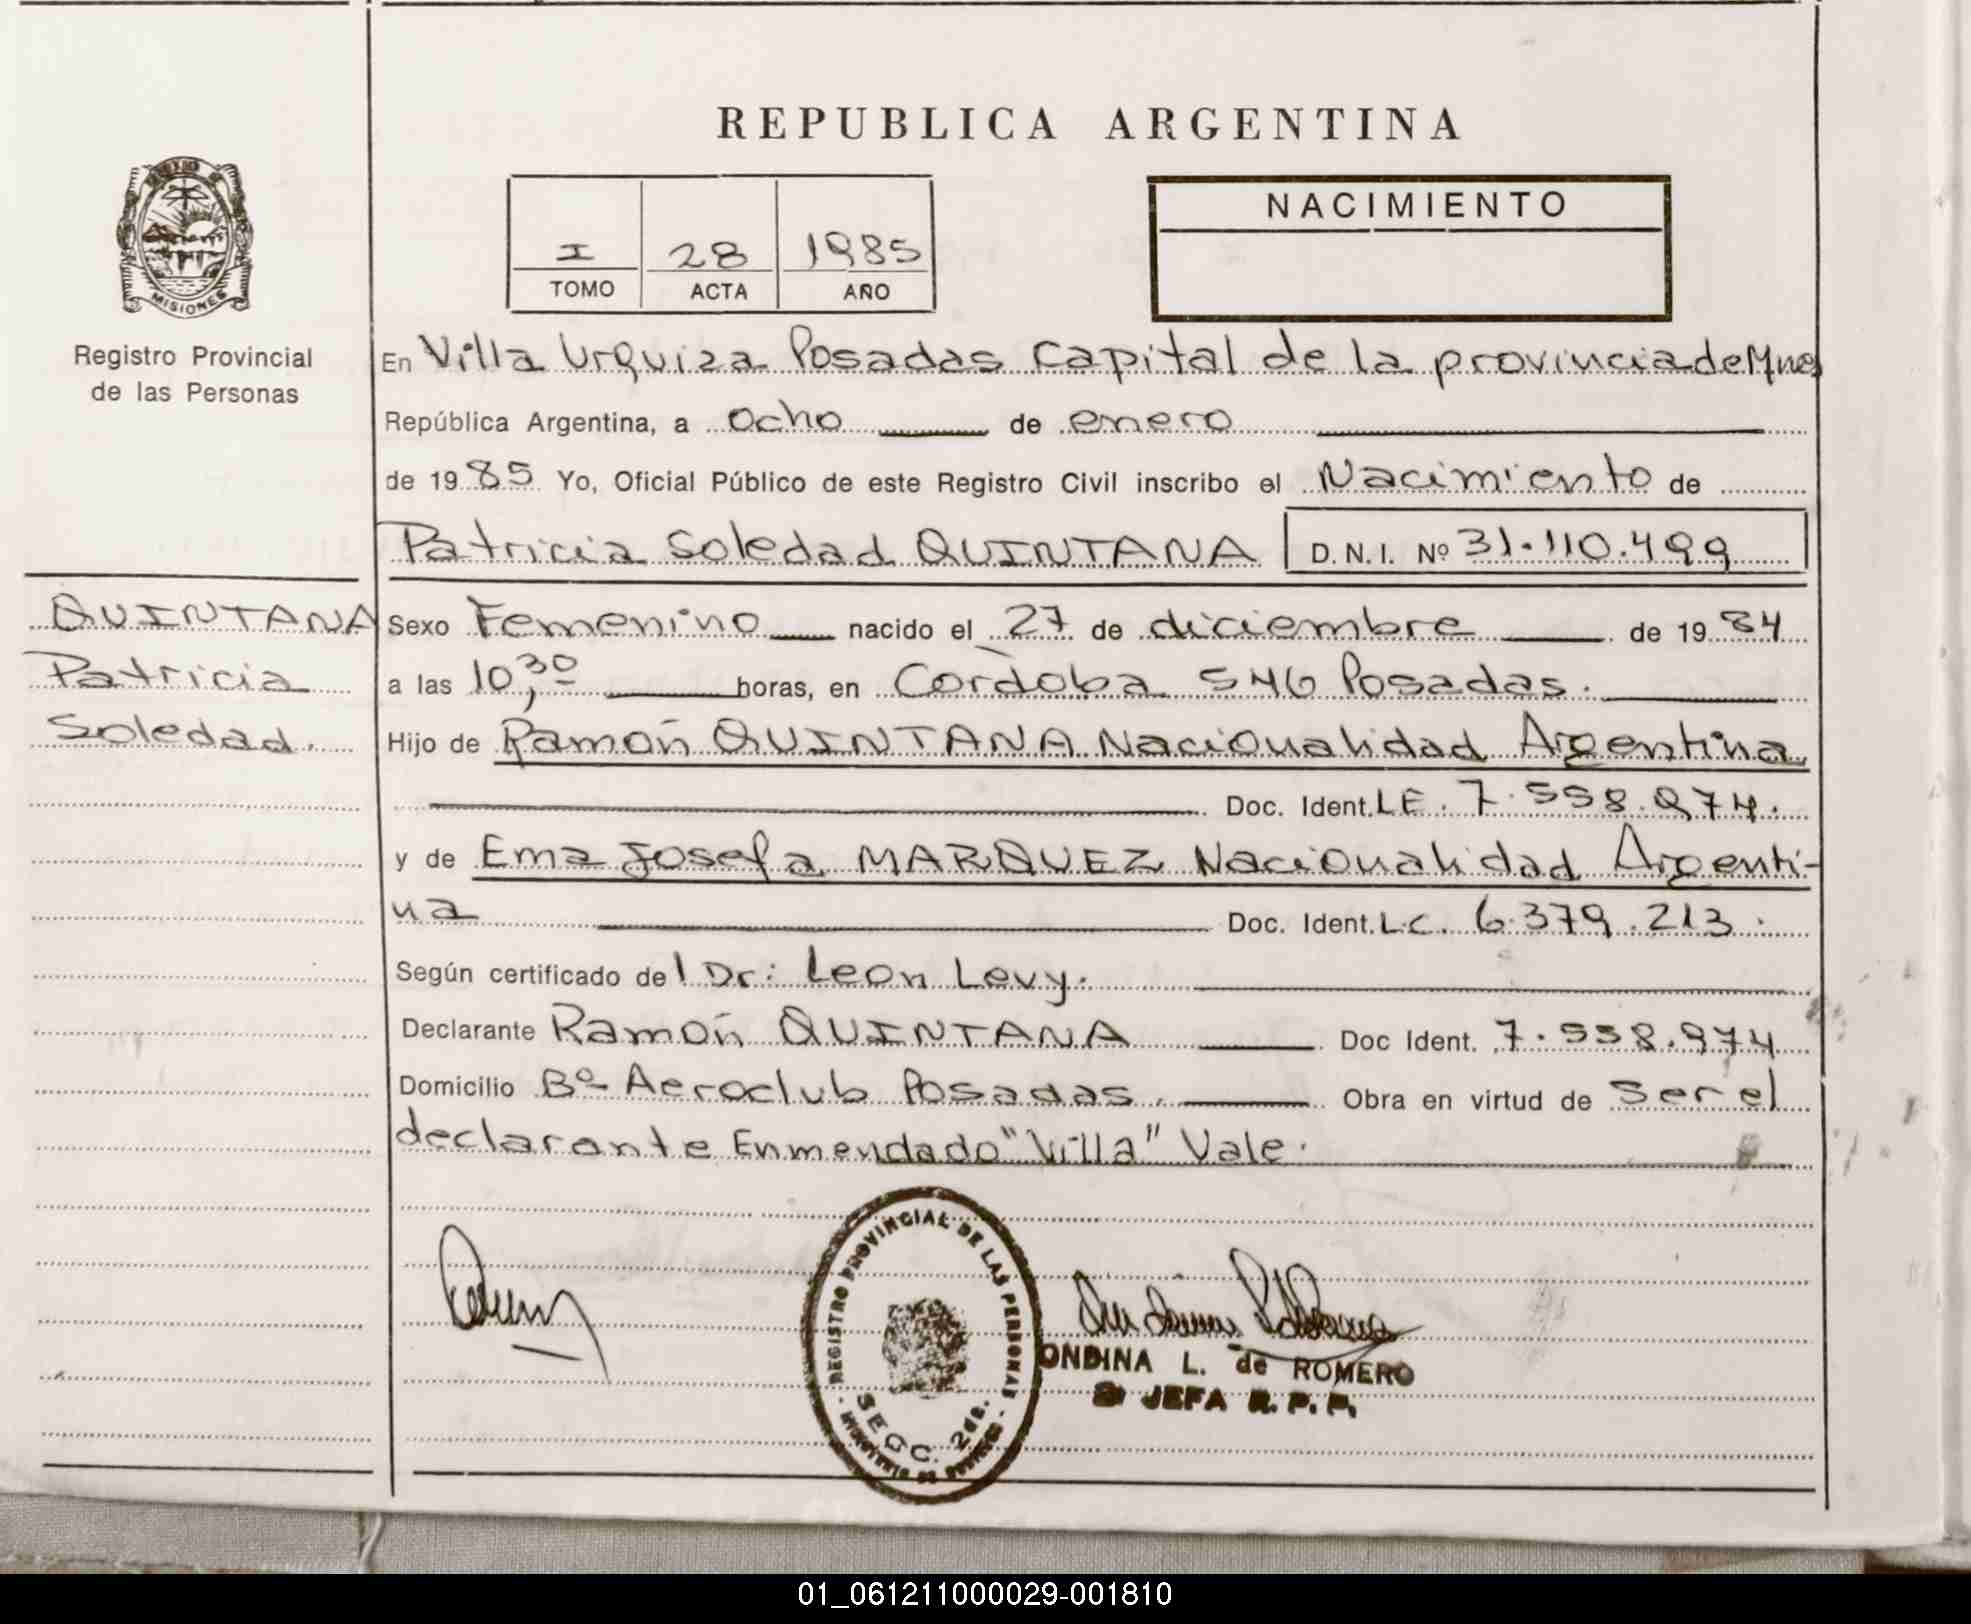 REPUBLICA ARGENTINA
I 28 1985
TOMO ACTA AÑO
NACIMIENTO
MISIONES
Registro Provincial
de las Personas
En Villa Urquiza Posadas Capital de la provincia de Mnes
República Argentina, a ocho de enero
de 1985 Yo, Oficial Público de este Registro Civil inscribo el Nacimiento de
Patricia Soledad QUINTANA D.N.I. Nº 31.110.499
QUINTANA
Patricia
Soledad.
Sexo Femenino nacido el 27 de diciembre de 1984
a las 10,30 horas, en Cordoba 546 Posadas.
Hijo de Ramón QUINTANA Nacionalidad Argentina
Doc. Ident. L.E. 7.558.974.
y de Ema Josefa MARQUEZ Nacionalidad Argenti-
na Doc. Ident. L.C. 6.379.213.
Según certificado del Dr: Leon Levy.
Declarante Ramón QUINTANA Doc Ident. 7.558.974
Domicilio Bº Aeroclub Posadas. Obra en virtud de ser el
declarante Enmendado "Villa" Vale.
REGISTRO PROVINCIAL DE LAS PERSONAS
SECC. 2da.
ONDINA L. de ROMERO
JEFA R.P.P.
01_061211000029-001810